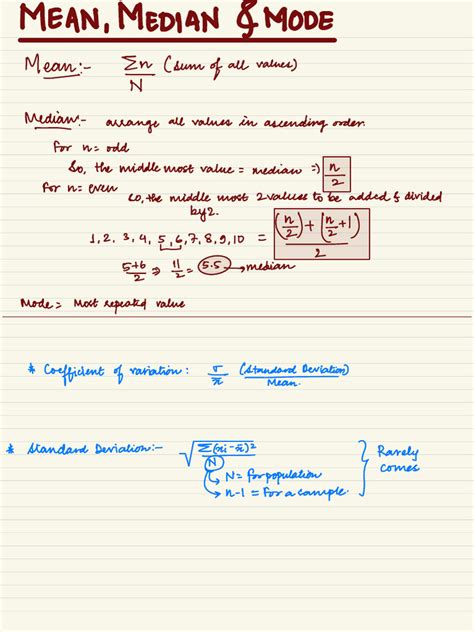 MEAN, MEDIAN & MODE
Mean:- Σn/N (sum of all values)
Median:- arrange all values in ascending order.
For n = odd
So, the middle most value = median => n/2
For n = even
so, the middle most 2 values to be added & divided
by 2.
1, 2, 3, 4, 5, 6, 7, 8, 9, 10 = ((n/2) + (n/2 + 1))/2
5+6/2 => 11/2 = 5.5 → median
Mode = Most repeated value
* Coefficient of variation: σ/x̄ (Standard Deviation)/Mean.
* Standard Deviation:- √Σ(xi - x̄)²/N
N = For population
n-1 = For a sample.
Rarely
comes